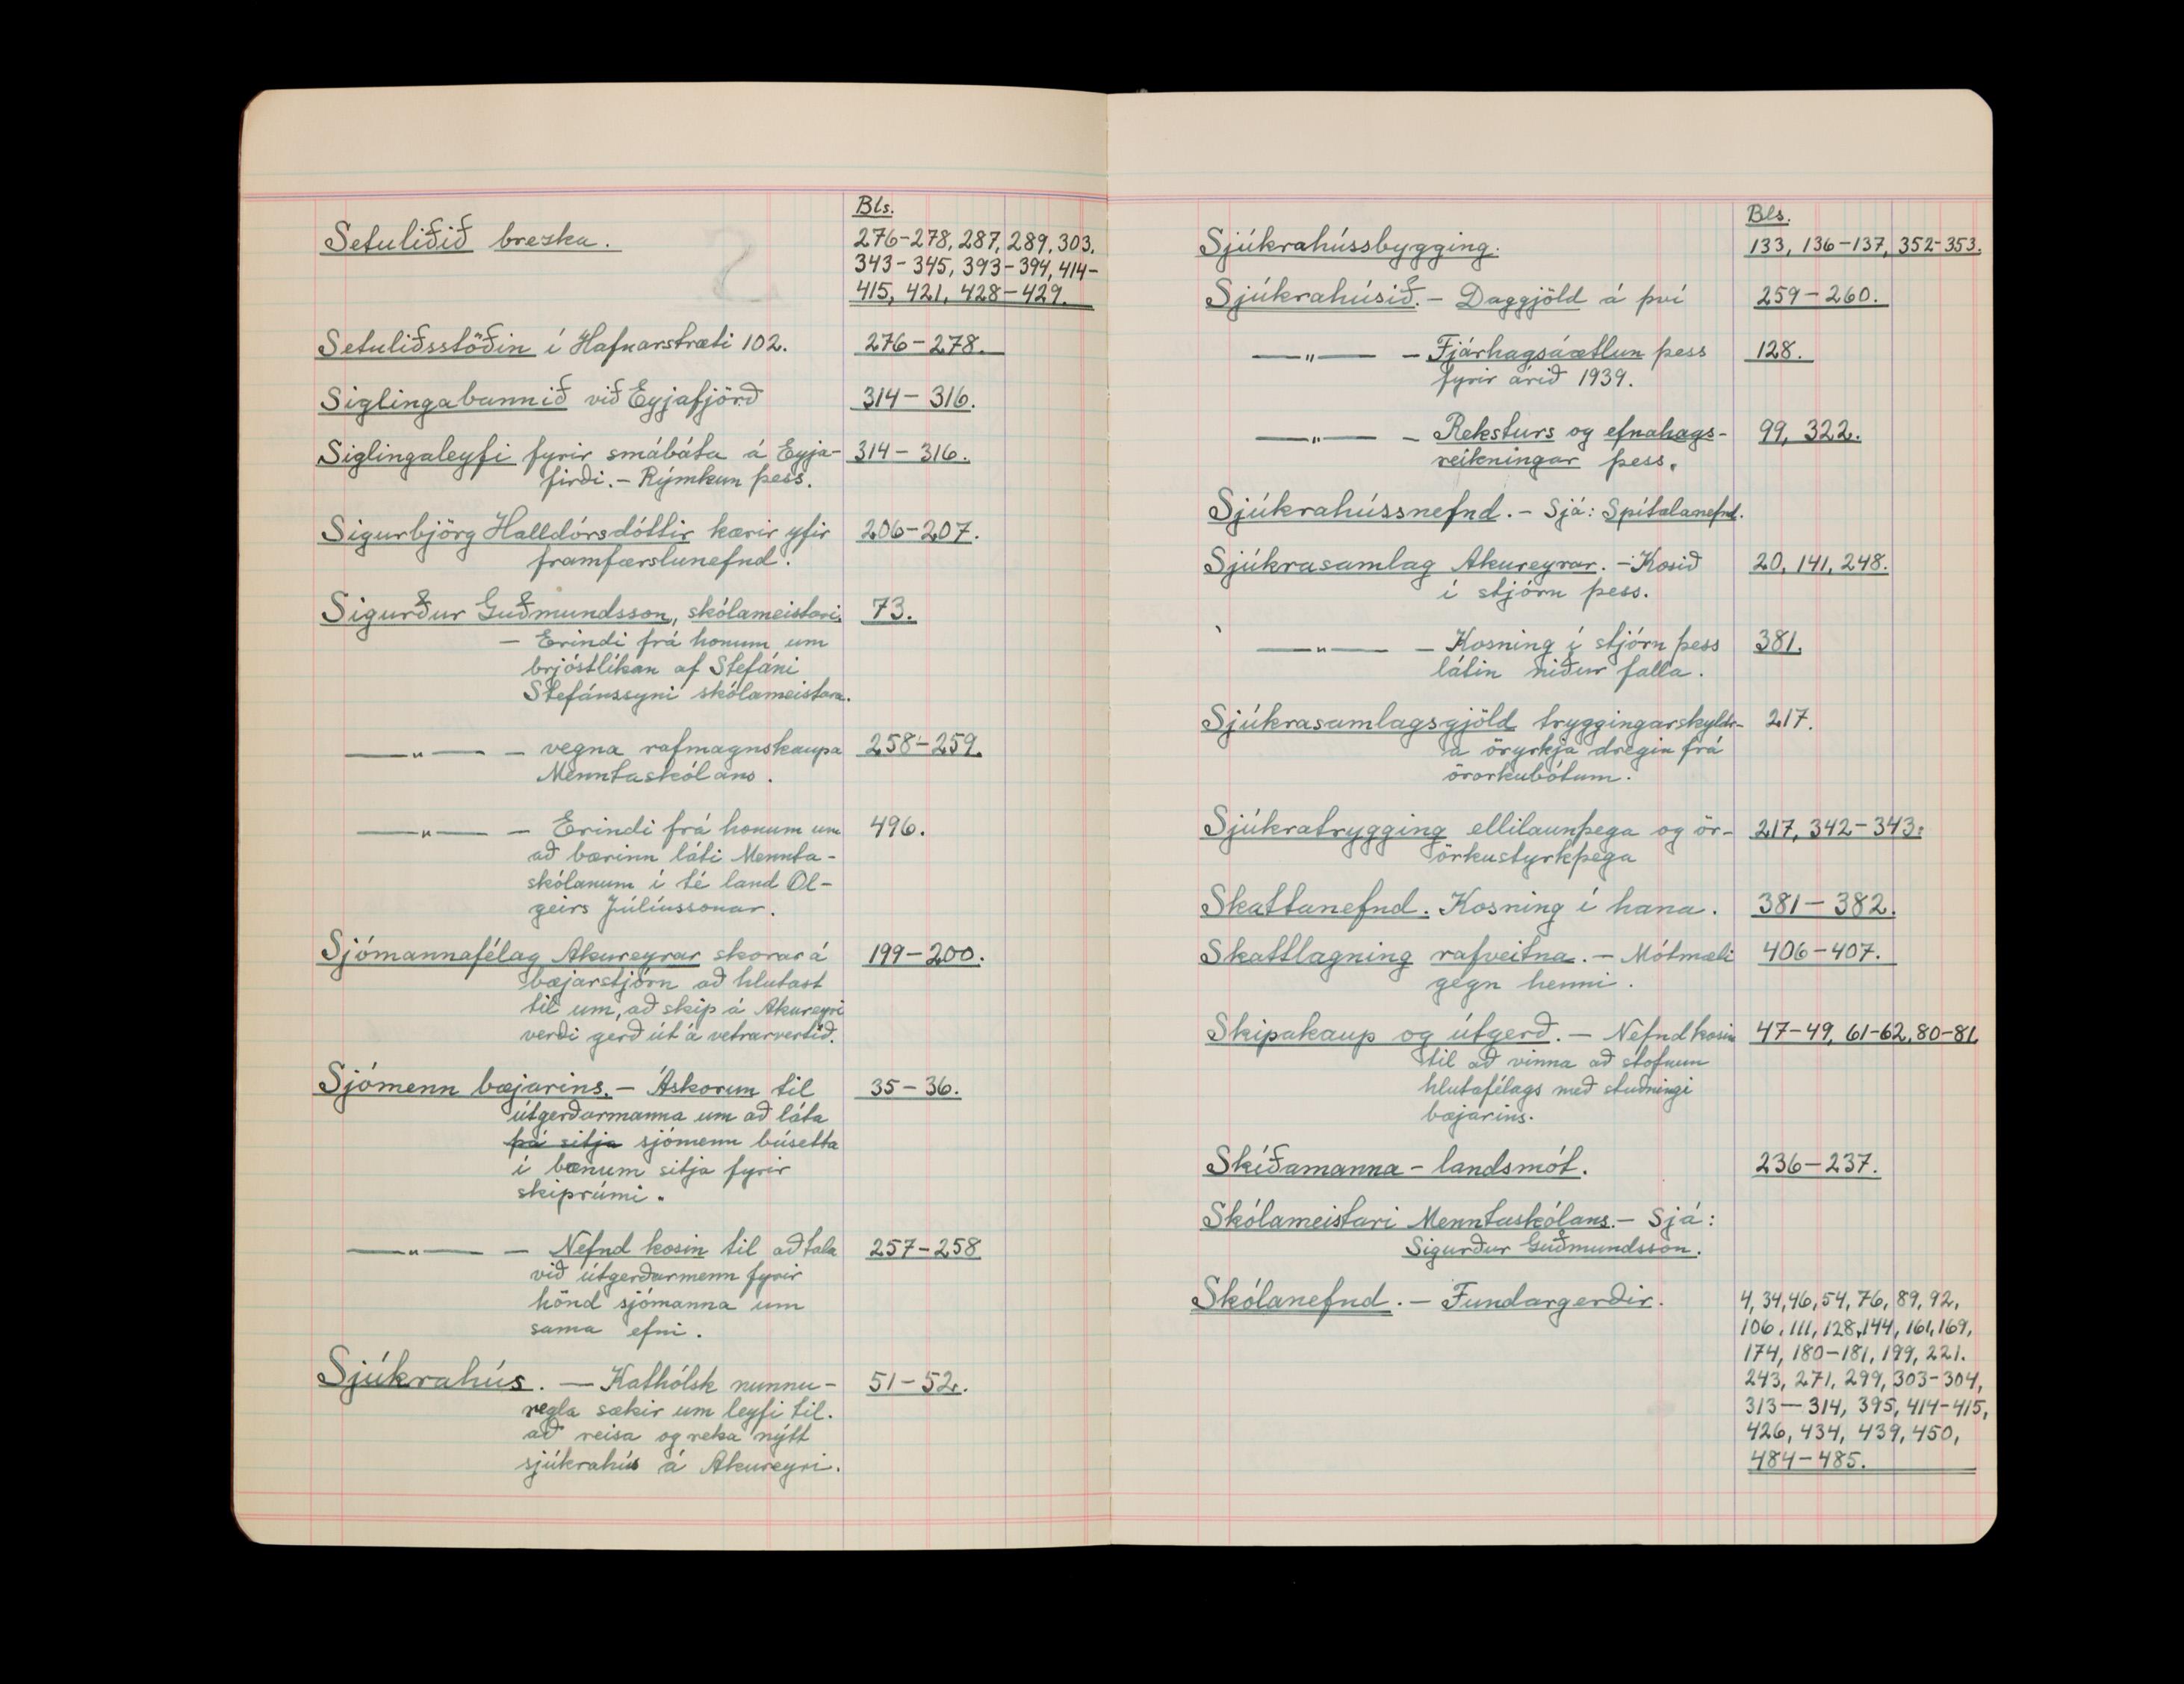 Bls.
Setuliðið brezka. 276-278, 287, 289, 303,
343-345, 393-394, 414-
415, 421, 428-429.
Setuliðsstöðin í Hafnarstræti 102. 276-278.
Siglingabannið við Eyjafjörð 314-316.
Siglingaleyfi fyrir smábáta á Eyja- 314-316.
firði. - Rýmkun þess.
Sigurbjörg Halldórsdóttir kærir yfir 206-207.
framfærslunefnd.
Sigurður Guðmundsson, skólameistari. 73.
- Erindi frá honum um
brjóstlíkan af Stefáni
Stefánssyni skólameistara.
—„— - vegna rafmagnskaupa 258-259.
Menntaskólans.
—„— - Erindi frá honum um 496.
að bærinn láti Mennta-
skólanum í té land Ol-
geirs Júlíussonar.
Sjómannafélag Akureyrar skorar á 199-200.
bæjarstjórn að hlutast
til um, að skip á Akureyri
verði gerð út á vetrarvertíð.
Sjómenn bæjarins. - Áskorun til 35-36.
útgerðarmanna um að láta
þá sitja sjómenn búsetta
í bænum sitja fyrir
skiprúmi.
—„— - Nefnd kosin til að tala 257-258
við útgerðarmenn fyrir
hönd sjómanna um
sama efni.
Sjúkrahús. - Kathólsk nunnu- 51-52.
regla sækir um leyfi til.
að reisa og reka nýtt
sjúkrahús á Akureyri.
Bls.
Sjúkrahússbygging. 133, 136-137, 352-353.
Sjúkrahúsið. - Daggjöld á því 259-260.
—„— - Fjárhagsáætlun þess 128.
fyrir árið 1939.
—„— - Reksturs og efnahags- 99, 322.
reikningar þess.
Sjúkrahússnefnd. - Sjá: Spítalanefnd.
Sjúkrasamlag Akureyrar. - Kosið 20, 141, 248.
í stjórn þess.
—„— - Kosning í stjórn þess 381.
látin niður falla.
Sjúkrasamlagsgjöld tryggingarskyldr- 217.
a öryrkja dregin frá
örorkubótum.
Sjúkratrygging ellilaunþega og ör- 217, 342-343.
örkustyrkþega
Skattanefnd. Kosning í hana. 381-382.
Skattlagning rafveitna. - Mótmæli 406-407.
gegn henni.
Skipakaup og útgerð. - Nefnd kosin 47-49, 61-62, 80-81.
til að vinna að stofnun
hlutafélags með stuðningi
bæjarins.
Skíðamanna-landsmót. 236-237.
Skólameistari Menntaskólans. - Sjá:
Sigurður Guðmundsson.
Skólanefnd. - Fundargerðir. 4, 34, 46, 54, 76, 89, 92,
106, 111, 128, 144, 161, 169,
174, 180-181, 199, 221.
243, 271, 299, 303-304,
313-314, 395, 414-415,
426, 434, 439, 450,
484-485.